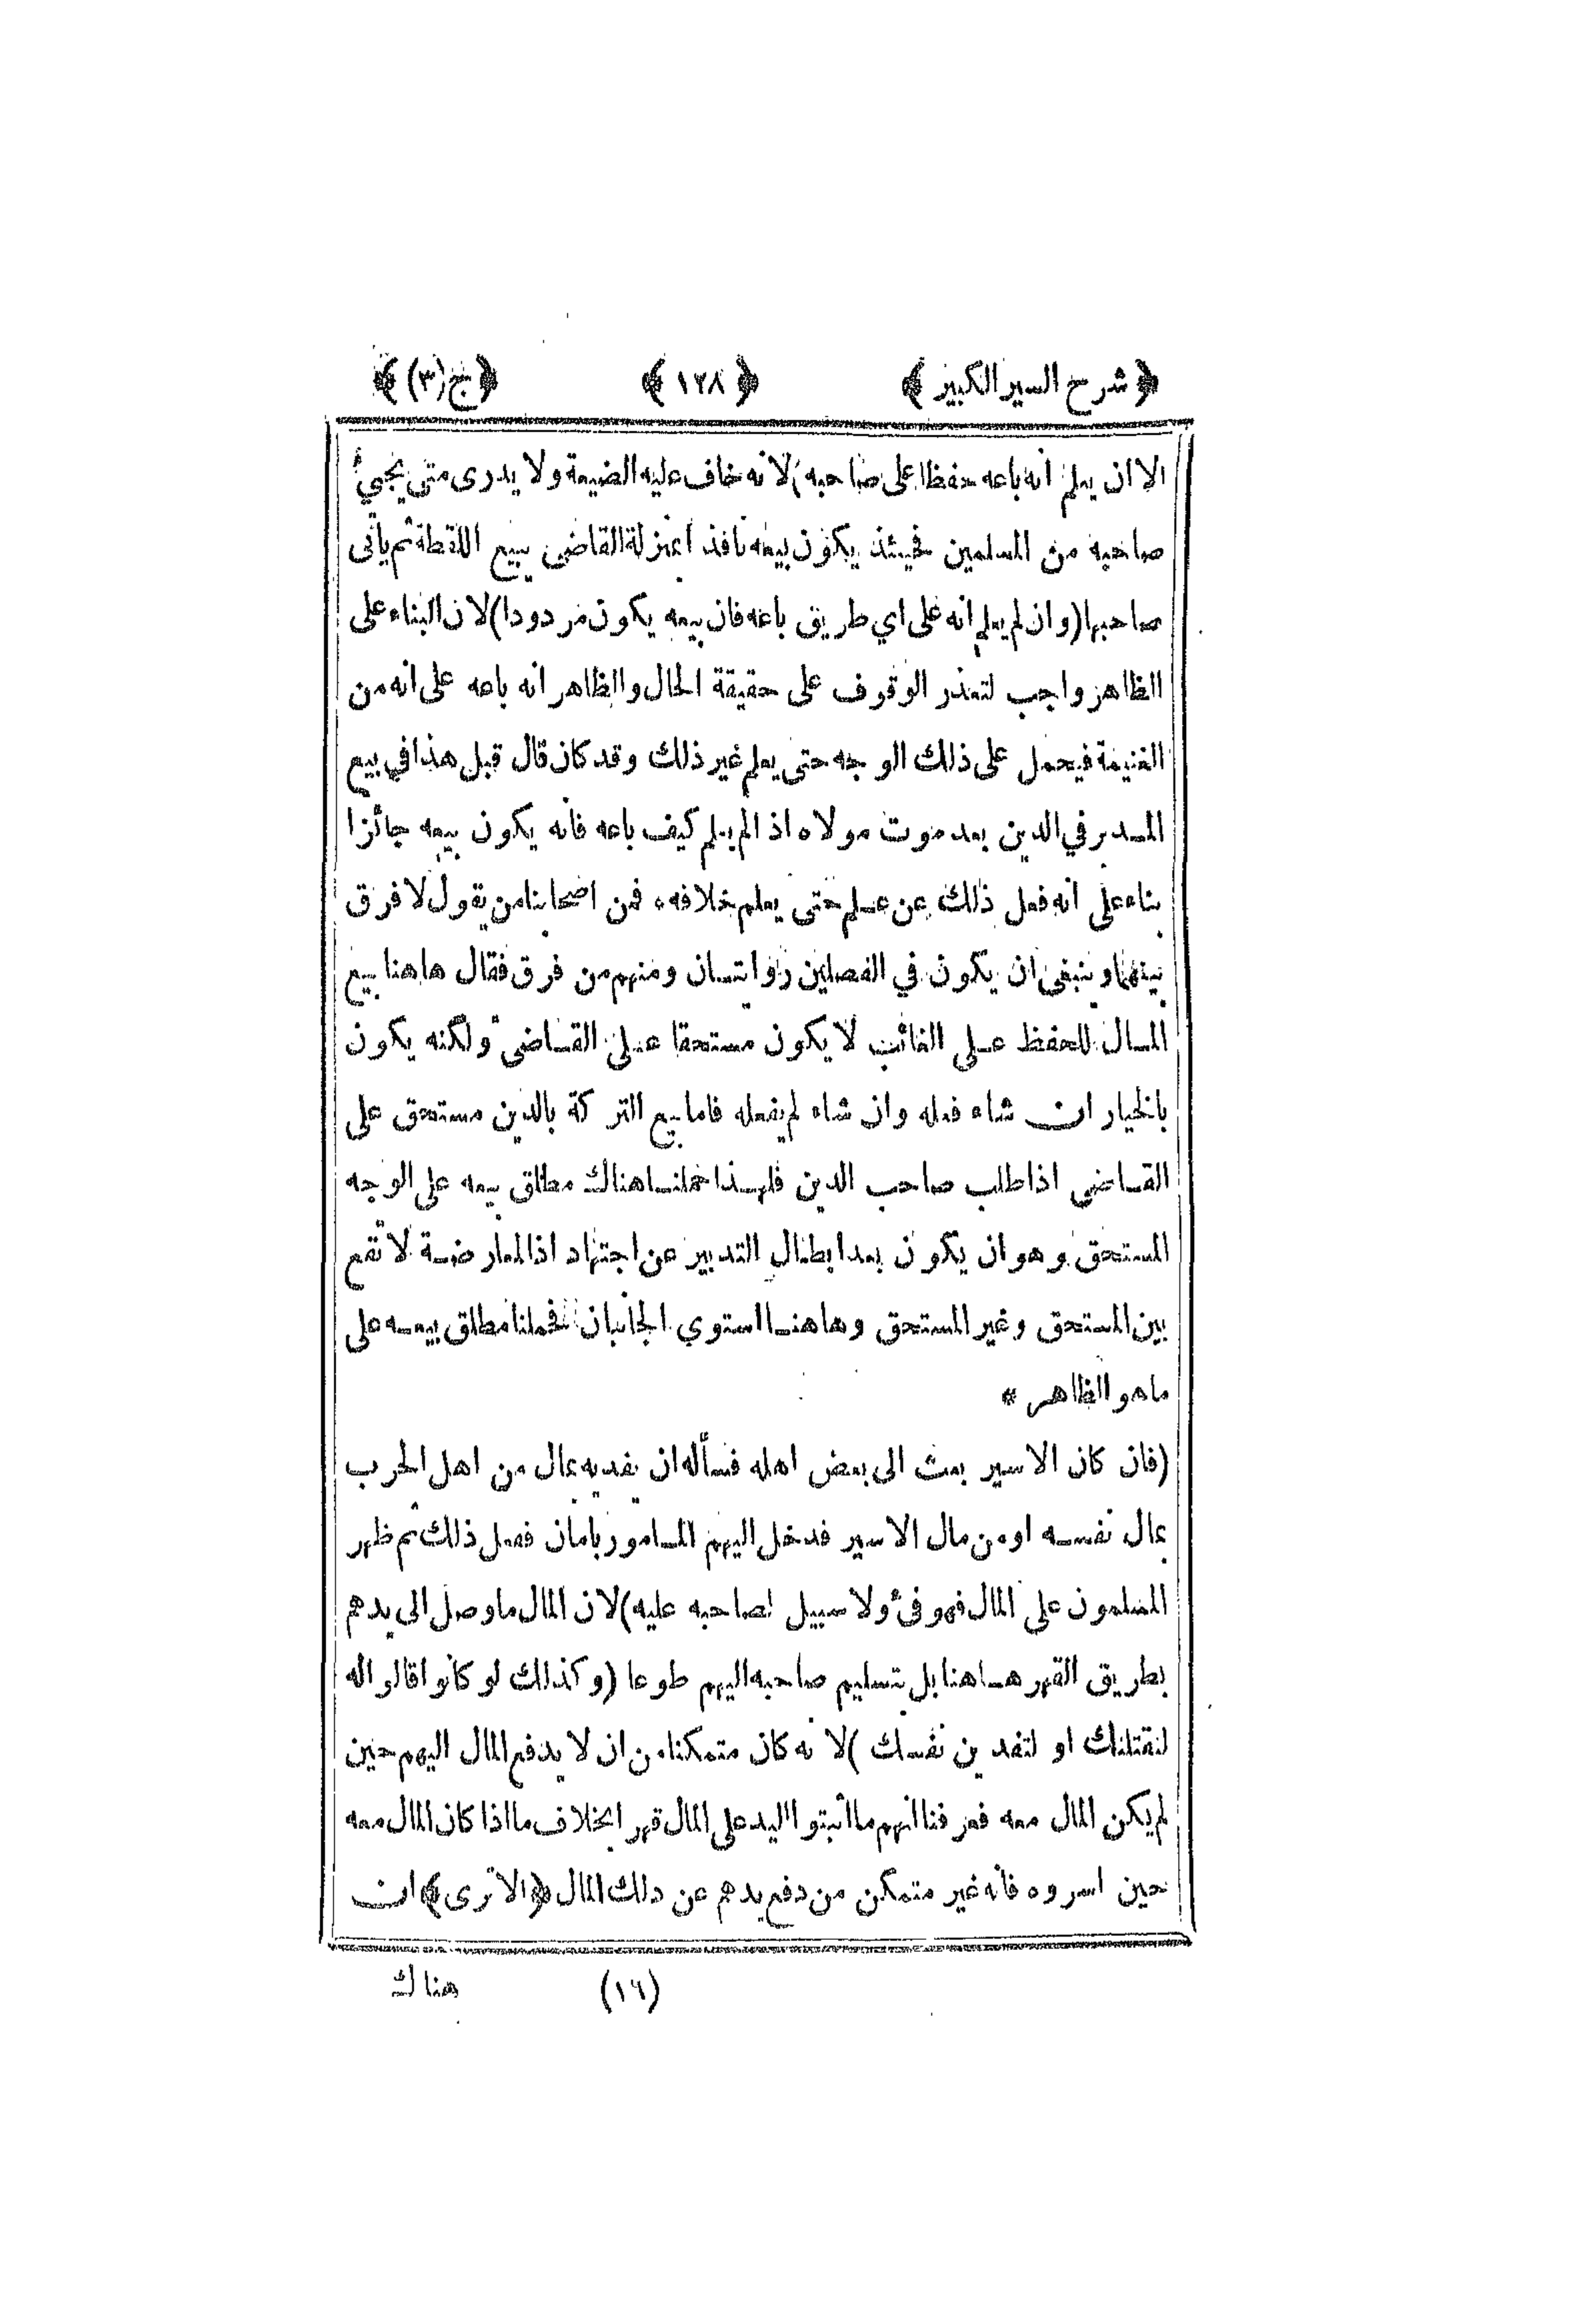 ﴿ شرح السير الكبير ﴾ ﴿ ١٢٨ ﴾ ﴿ ج (٣) ﴾
الا ان يعلم انه باعه حفظا على صاحبه) لانه خاف عليه الضيعة ولا يدرى متى يجيئ
صاحبه من المسلمين فحينئذ يكون بيعه نافذا بمنزلة القاضى يبيع اللقطة ثم يأتى
صاحبها (وان لم يعلم انه على اي طريق باعه فان بيعه يكون مردودا) لان البناء على
الظاهر واجب لتعذر الوقوف على حقيقة الحال والظاهر انه باعه على انه من
الغنيمة فيحمل على ذلك الوجه حتى يعلم غير ذلك وقد كان قال قبل هذا في بيع
المدبر في الدين بعد موت مولاه اذا لم يعلم كيف باعه فانه يكون بيعه جائزا
بناء على انه فعل ذلك عن علم حتى يعلم خلافه، فمن اصحابنا من يقول لا فرق
بينهما وينبغى ان يكون في الفصلين روايتان ومنهم من فرق فقال هاهنا بيع
المال للحفظ على الغائب لا يكون مستحقا على القاضى ولكنه يكون
بالخيار ان شاء فعله وان شاء لم يفعله فاما بيع التركة بالدين مستحق على
القاضى اذا طلب صاحب الدين فلهذا حملنا هناك مطلق بيعه على الوجه
المستحق وهو ان يكون بعد ابطال التدبير عن اجتهاد اذ المعارضة لا تقع
بين المستحق وغير المستحق وهاهنا استوي الجانبان فحملنا مطلق بيعه على
ما هو الظاهر *
(فان كان الاسير بعث الى بعض اهله فسأله ان يفديه بمال من اهل الحرب
بمال نفسه او من مال الاسير فدخل اليهم المامور بامان ففعل ذلك ثم ظهر
المسلمون على المال فهو فئ ولا سبيل لصاحبه عليه) لان المال ما وصل الى يدهم
بطريق القهر هاهنا بل بتسليم صاحبه اليهم طوعا (وكذلك لو كانوا قالوا له
لنقتلنك او لتفدين نفسك) لانه كان متمكنا من ان لا يدفع المال اليهم حين
لم يكن المال معه فعرفنا انهم ما اثبتوا اليد على المال قهرا بخلاف ما اذا كان المال معه
حين اسروه فانه غير متمكن من دفع يدهم عن ذلك المال ﴿الا ترى﴾ ان
(١٦) هناك